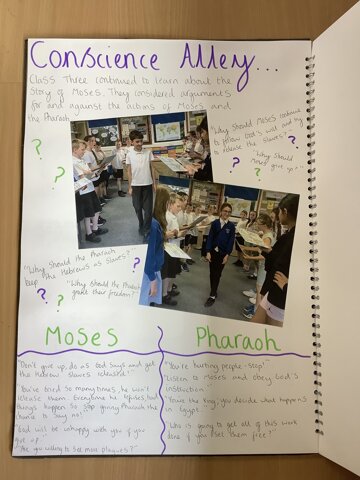 Conscience Alley...
Class Three continued to learn about the
Story of Moses. They considered arguments
for and against the actions of Moses and
the Pharaoh.
"Why should Moses continue
to follow God's will and try
to release the slaves?"
"Why should
Moses give up?"
"Why should the Pharaoh
keep the Hebrews as slaves?"
"Why should the Pharaoh
grant their freedom?"
Moses
"Don't give up, do as God says and get
the Hebrew slaves released!"
"You've tried so many times, he won't
release them. Everytime he refuses, bad
things happen so stop giving Pharaoh the
chance to say no!"
"God will be unhappy with you if you
give up."
"Are you willing to see more plagues?"
Pharaoh
"You're hurting people - stop!"
"Listen to Moses and obey God's
instruction."
"You're the King, you decide what happens
in Egypt."
"Who is going to get all of this work
done if you set them free?"